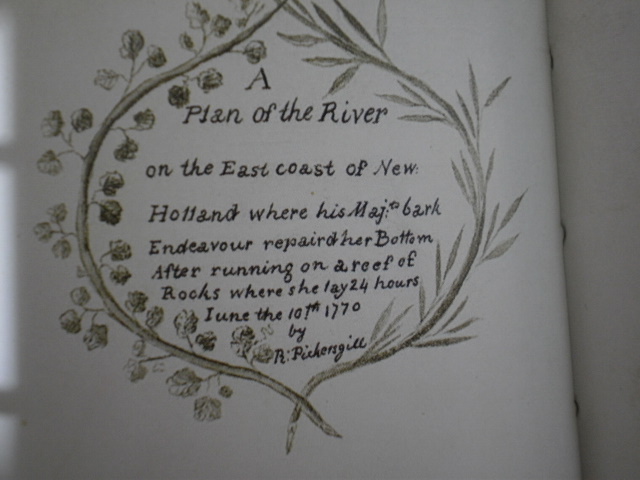 A
Plan of the River
on the East coast of New:
Holland where his Maj:ts bark
Endeavour repaird her Bottom
After running on a reef of
Rocks where she lay 24 hours
Iune the 10th 1770
by
R: Pickersgill